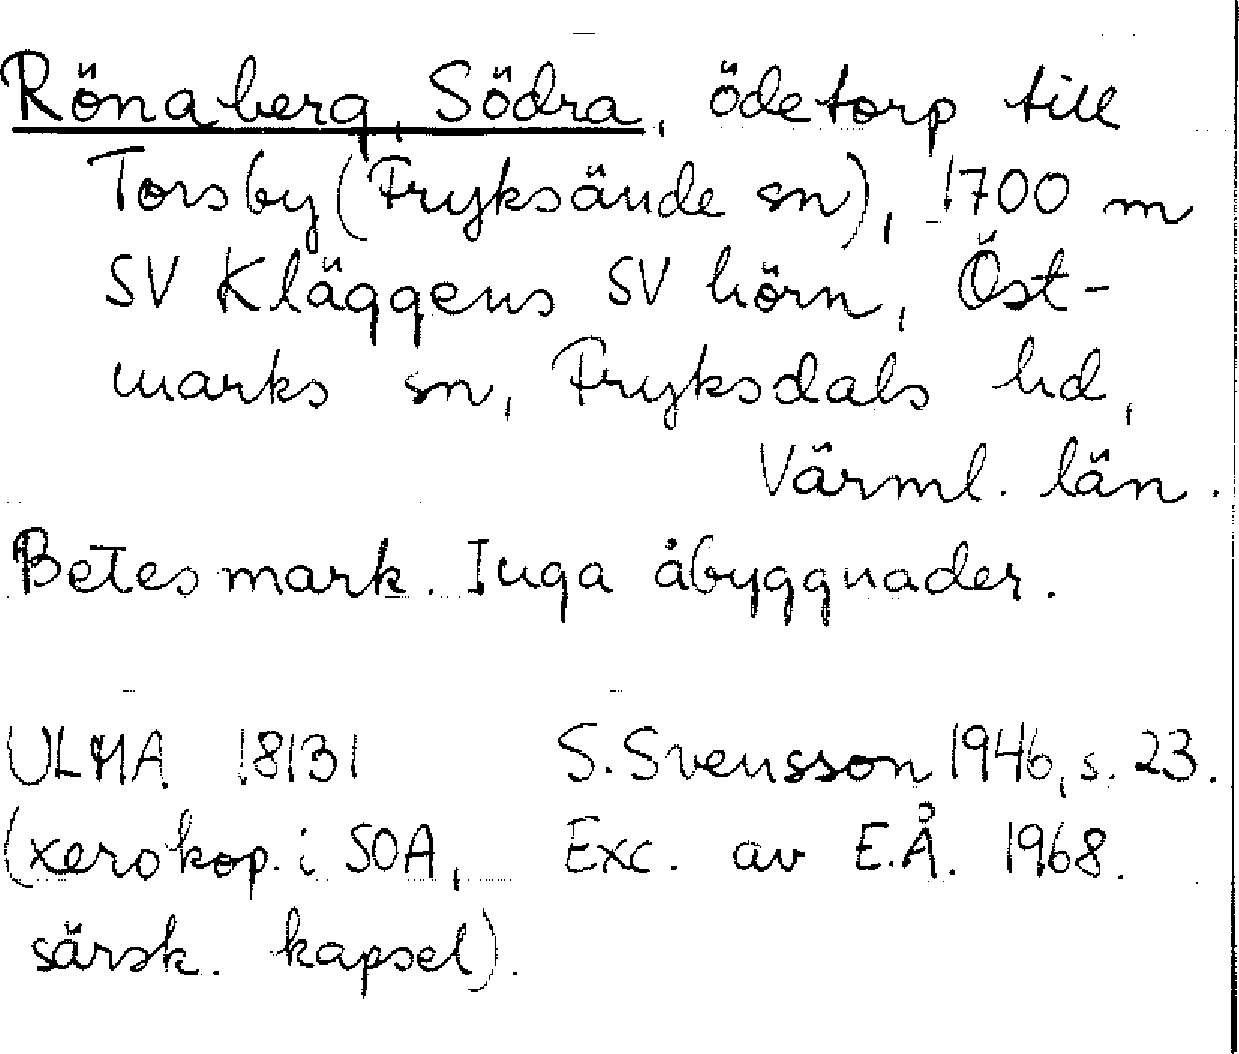 Rönaberg, Södra, ödetorp till
Torsby (Fryksände sn), 1700 m
SV Kläggens SV hörn, Öst-
marks sn, Fryksdals hd,
Värml. län.
Betesmark. Inga åbyggnader.
ULMA 18131 S. Svensson 1946, s. 23.
(xerokop. i SOA, Exc. av E.Å. 1968.
särsk. kapsel).